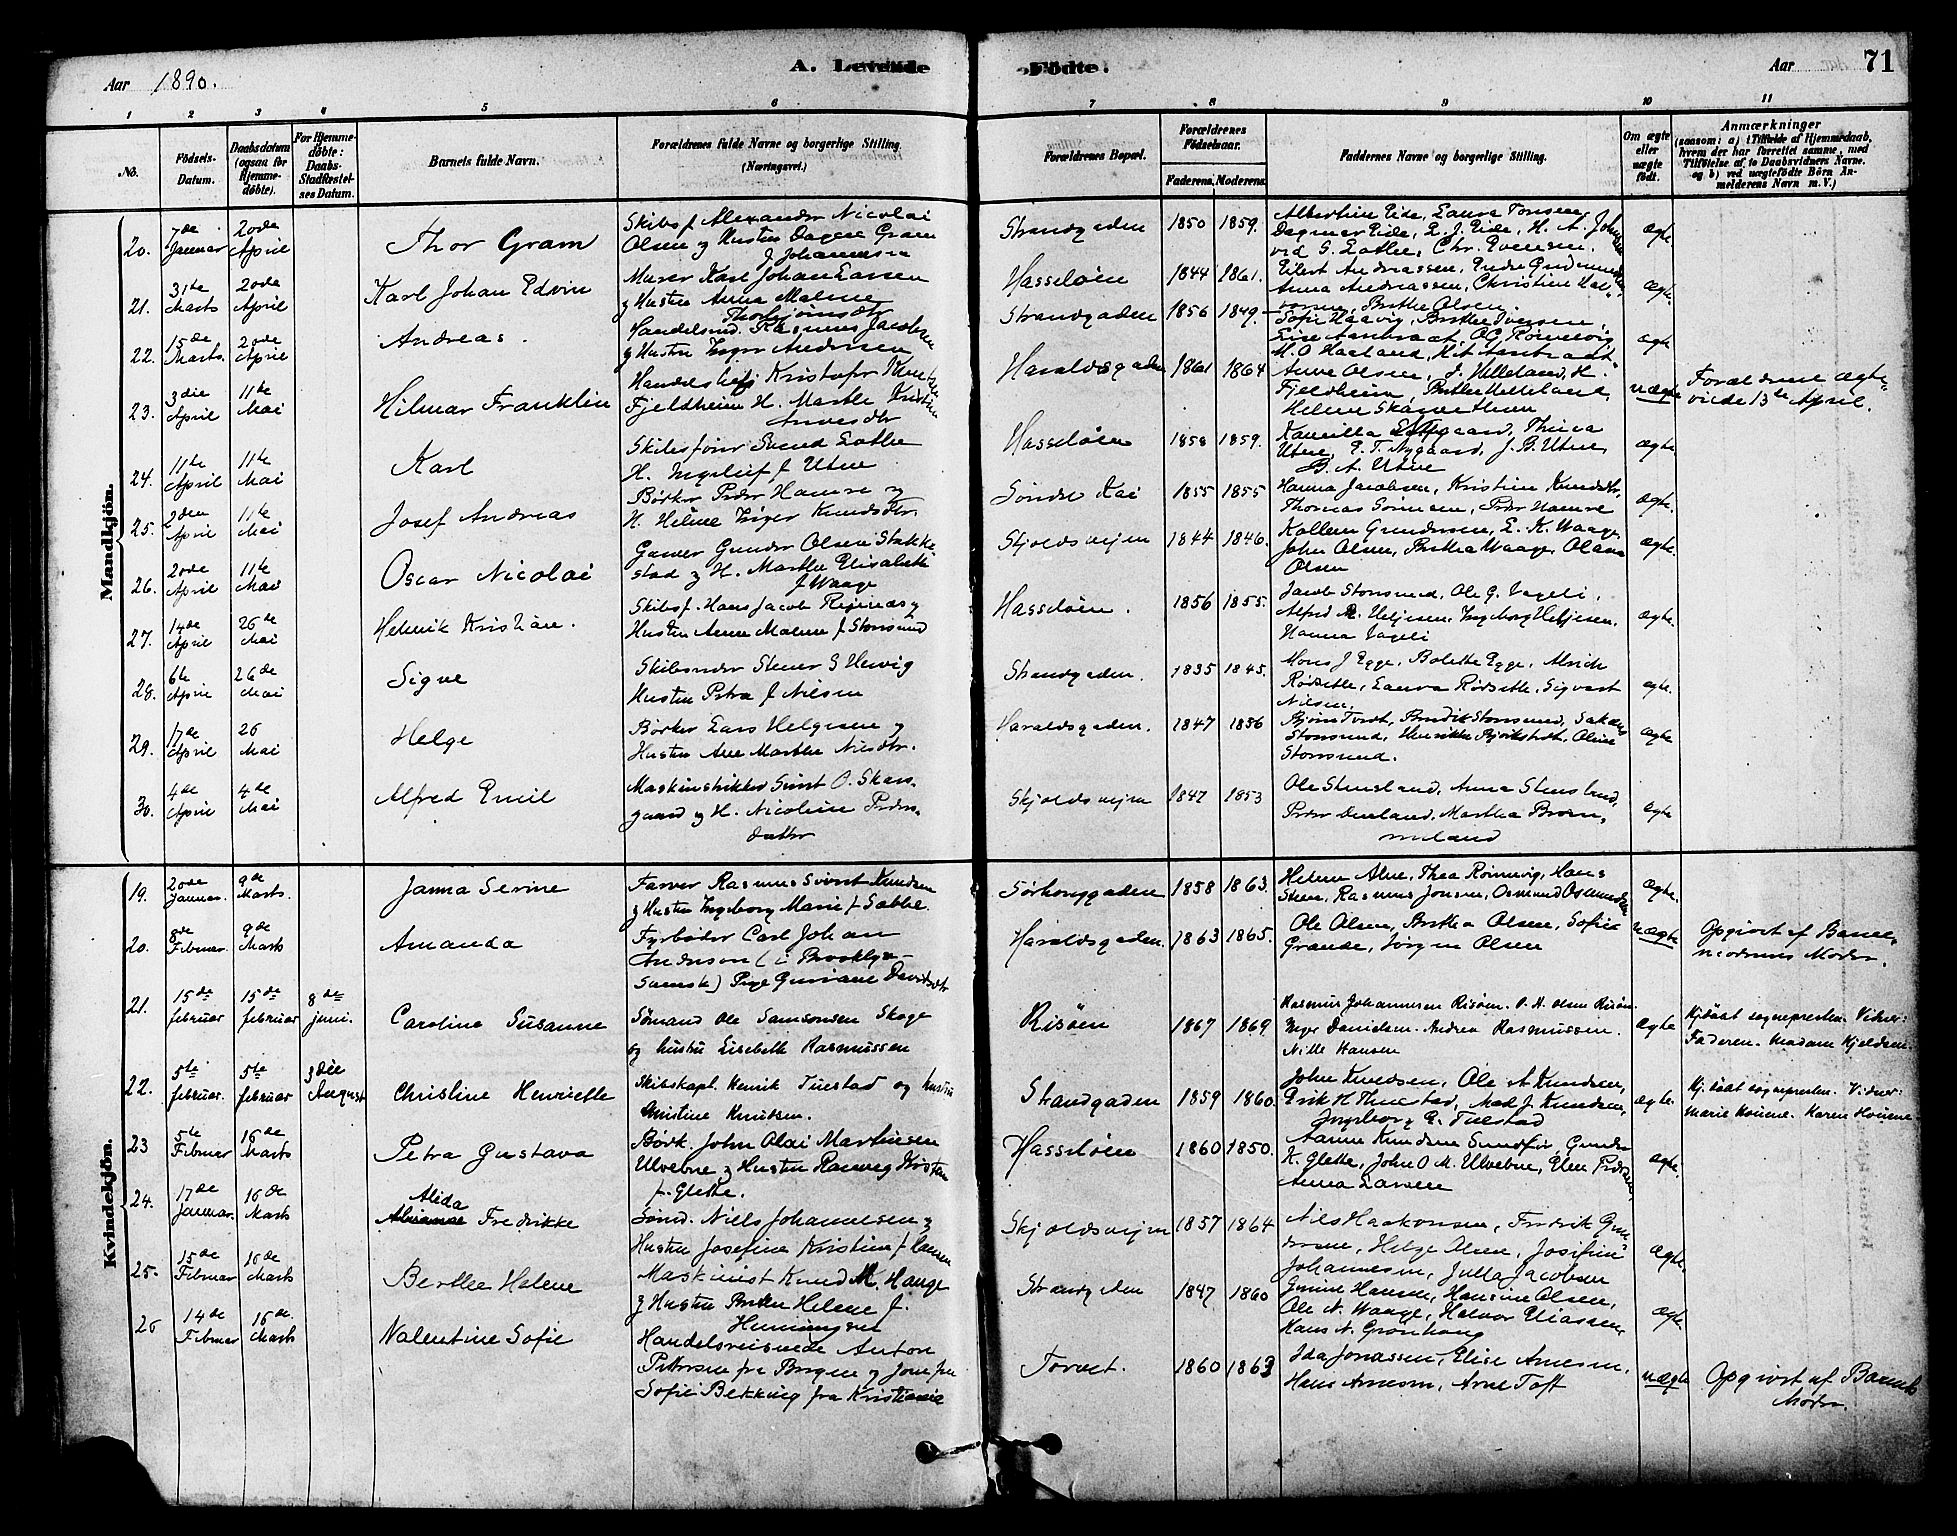 Aar 1890.
A. Levende Fødte.
Aar 71
1 2 3 4 5 6 7 8 9 10 11
No.
Fødsels-Datum.
Daabsdatum (ogsaa for Hjemmedøbte).
For Hjemmedøbte: Daabs-Stadfæstelses Datum.
Barnets fulde Navn.
Forældrenes fulde Navne og borgerlige Stilling. (Næringsvei.)
Forældrenes Bopæl.
Forældrenes Fødselsaar.
Faderens. Moderens.
Faddernes Navne og borgerlige Stilling.
Om ægte eller uægte født.
Anmærkninger
(saasom: a) i Tilfælde af Hjemmedaab, hvem der har forrettet samme, med Tilføielse af to Daabsvidners Navne. og b) ved uægtefødte Børn Anmelderens Navn m. V.)
Mandkjøn.
20. 7de Januar 20de April Thor Gram
Skibsf Alexander Nicolai
Olsen og Hustru Dagene Gram
f Johannesen
Strandgaden 1850 1859.
Albertine Eide, Laura Tonsen
Dagmar Eide, L. J. Eide, H. A. Johnsen
ved G. Lothe, Chr. Evensen.
ægte
21. 31te Marts 20de April Karl Johan Edvin
Murer Karl Johan Larsen
og Hustru Anna Malene
Thorbjørnsdtr
Hasseløen 1844 1861.
Eilert Andreassen, Endre Gudmundsen
Anna Andreassen, Christine Hal-
vorsen, Berthe Olsen.
ægte
22. 15de Marts. 20de April Andreas.
Handelsmd. Rasmus Jacobsen
og Hustru Inger Andersen
Strandgaden 1856 1849.
Sofie Haavig, Berthe Iversen,
Lise Aanbraat, O G Rønnevig
M. O Haaland, H. A Aanbraat
ægte
23. 3die April 11te Mai Hilmar Franklin
Handelsbetj Kristofer Knutsen
Fjeldheim H. Marthe Kristine
Arnesdtr
Haraldsgaden 1861 1864
Anne Olsen, J. Helleland, H.
Fjeldheim, Berthe Helleland,
Helene
uægte
Forældrene ægte-
viede 13de April.
24. 11te April 11te Mai Karl
Skibsfører Svend Lothe
H. Ingeleif f Utne
Hasseløen 1858 1859.
Kamilla Nygaard, Thina
Utne, E. T. Nygaard, J. B. Utne
B. A. Utne
ægte
25. 2den April 11te Mai Josef Andreas
Bøkker Peder Hamre og
H. Helene Inger Knudsdtr.
Søndre Kai 1855 1855
Hanna Jacobsen, Kristine Knudsdtr,
Thomas Sørensen, Peder Hamre
ægte.
26. 20de April 11te Mai Oscar Nicolai
Garver Gunder Olsen Stakke-
stad og H. Marthe Elisabeth
f Waage
Skjoldsveien 1844 1846.
Kolleen Gundersen, E. K. Waage,
John Olsen, Berthea Waage, Olava
Olsen
ægte.
27. 14de April 26de Mai Henrik Kristian.
Skibsf. Hans Jacob Reginius og
Hustru Anna Malene f Storesund
Hasseløen. 1856 1855.
Jacob Storesund, Ole G. Vageli,
Alfred M. Helgesen, Ingeborg Helgesen.
Hanna Vageli
ægte.
28. 6te April 26de Mai Sigve
Skibsreder Stener S Hervig
Hustru Petra f Nilsen
Strandgaden. 1835 1845.
Mons J Egge, Bolette Egge, Alrick
Rødsethe, Laura Rødsethe, Sigvart
Nilsen.
ægte.
29. 17de April 26 Mai Helge
Bøkker Lars Helgesen og
Hustru Ane Marthe Nilsdtr.
Haraldsgaden. 1847 1856
Bjørn Tvedt, Bendik Storesund, Sakarias
Storesund, Henrikke Bjørkstedt, Oline
Storesund.
ægte
30. 4de April 4de Mai Alfred Emil
Maskinstrikker Simet O. Skaar-
gaard og H. Nicoline Peders-
datter
Skjoldsveien 1847 1853
Ole Stensland, Anna Stensland,
Peder Dueland, Martha Bron-
meland
ægte
Kvindekjøn.
19. 20de Januar. 9de Marts. Janna Serine
Farver Rasmus Sivert Knudsen
og Hustru Ingeborg Marie f Sabbe.
Sørhauggaden 1858 1863.
Helene Alne, Thea Rønnevig, Hans
Steen, Rasmus Jonsen, Osmund Osmundsen
ægte.
20. 8de Februar. 9de Marts Amanda
Fyrbøder Carl Johan
Anderson (i Brooklyn -
Svensk) Pige Guriane Davidsdtr
Haraldsgaden. 1863 1865.
Ole Olsen, Berthea Olsen, Sofie
Grande, Jørgen Olsen
uægte
Opgivet af Barne-
moderens Moder.
21. 15de februar 15de februar 8de juni. Caroline Susanne
Sømand Ole Samsonsen Skoge
og hustru Lisebeth Rasmussen
Risøen 1867 1869
Rasmus Johannesen Risøen. O. H. Olsen Risøen
Inger Danielsen. Andrea Rasmussen.
Nille Hansen
ægte
Hj.døbt sognepresten. Vidner:
Faderen. Madam Kjeldsen
22. 5te februar. 5te februar 3die August Christine Henriette
Skibskapt. Henrik Tuestad og hustru
Christine Knudsen.
Strandgaden 1859 1860
John Knudsen, Ole A Knudsen,
Erik H Thuestad, Mad J. Knudsen,
Ingeborg E. Tuestad
ægte.
Hj. døbt sognepresten. Vidner:
Marie Houene. Karen Houene
23 5te Februar 16de Marts Petra Gustava
Børk. John Olai Martinsen
Ulvebne og Hustru Ranveig Kristine
f. Glette.
Hasseløen 1860 1850.
Aanne Knudsen Sundfør, Gunder
K. Glette, John O. M. Ulvebne, Elen Pedersen,
Anna Larsen
ægte.
24. 17de Januar. 16de Marts Alida Fredrikke
Sømd. Niels Johannesen og
Hustru Josefine Kristine f Hansen
Skjoldsveien 1857 1864
Nils Haakonsen, Fredrik Gun-
dersen, Helge Olsen, Josefine
Johannesen, Julla Jacobsen
ægte.
25. 15de Februar 16de Marts Berthe Helene
Maskinist Knud M. Hauge
og Hustru Berthe Helene f.
Henningsen
Strandgaden 1847 1860
Gunine Hansen, Hansine Olsen,
Ole N. Waage, Halvor Eliassen,
Hans N. Grønhaug
ægte
26 14de Februar 16de Marts Valentine Sofie
Handelsreisende Anton
Pettersen fra Bergen og Jomfru
Sofie Bekking fra Kristiania
Torvet. 1860 1863
Ida Jonassen, Elise Arnesen,
Hans Arnesen, Arne Toft
uægte
Opgivet af Barnets
Moder.